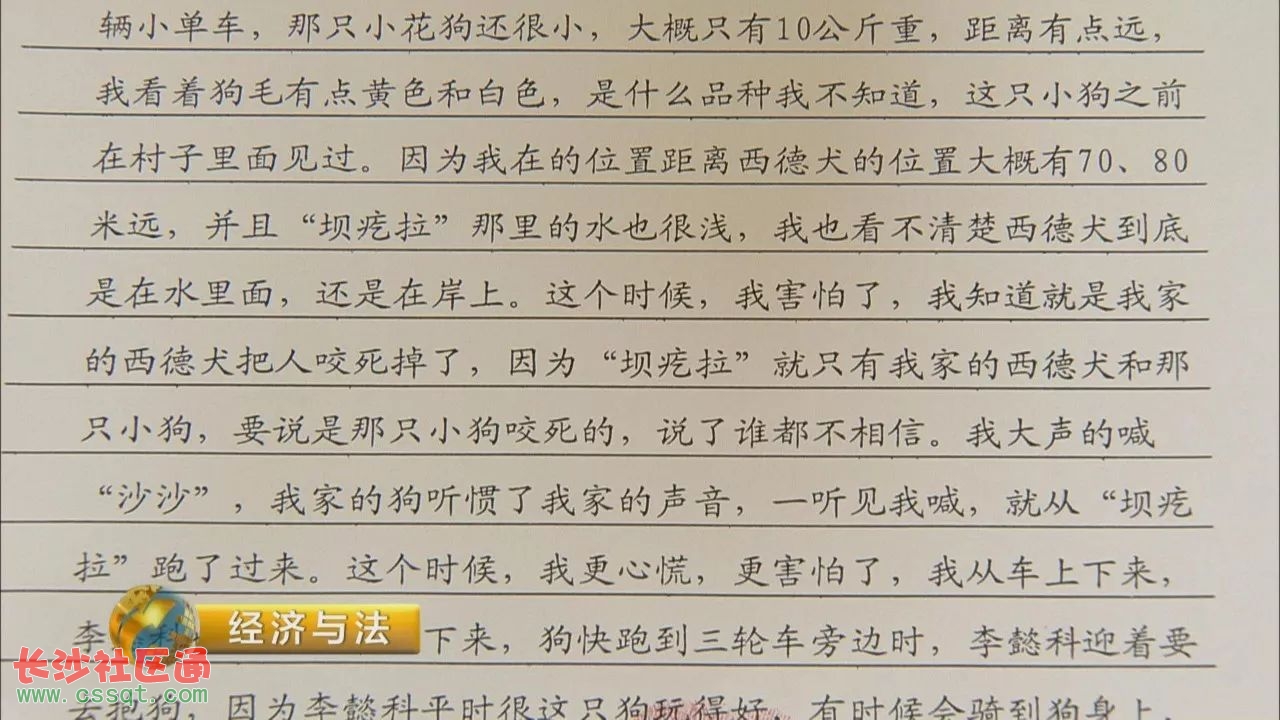 辆小单车，那只小花狗还很小，大概只有10公斤重，距离有点远，
我看着狗毛有点黄色和白色，是什么品种我不知道，这只小狗之前
在村子里面见过。因为我在的位置距离西德犬的位置大概有70、80
米远，并且“坝疙拉”那里的水也很浅，我也看不清楚西德犬到底
是在水里面，还是在岸上。这个时候，我害怕了，我知道就是我家
的西德犬把人咬死掉了，因为“坝疙拉”就只有我家的西德犬和那
只小狗，要说是那只小狗咬死的，说了谁都不相信。我大声的喊
“沙沙”，我家的狗听惯了我家的声音，一听见我喊，就从“坝疙
拉”跑了过来。这个时候，我更心慌，更害怕了，我从车上下来，
李 科 下来，狗快跑到三轮车旁边时，李懿科迎着要
去抱狗，因为李懿科平时很这只狗玩得好，有时候会骑到狗身上，
经济与法
长沙社区通
www.cssqt.com